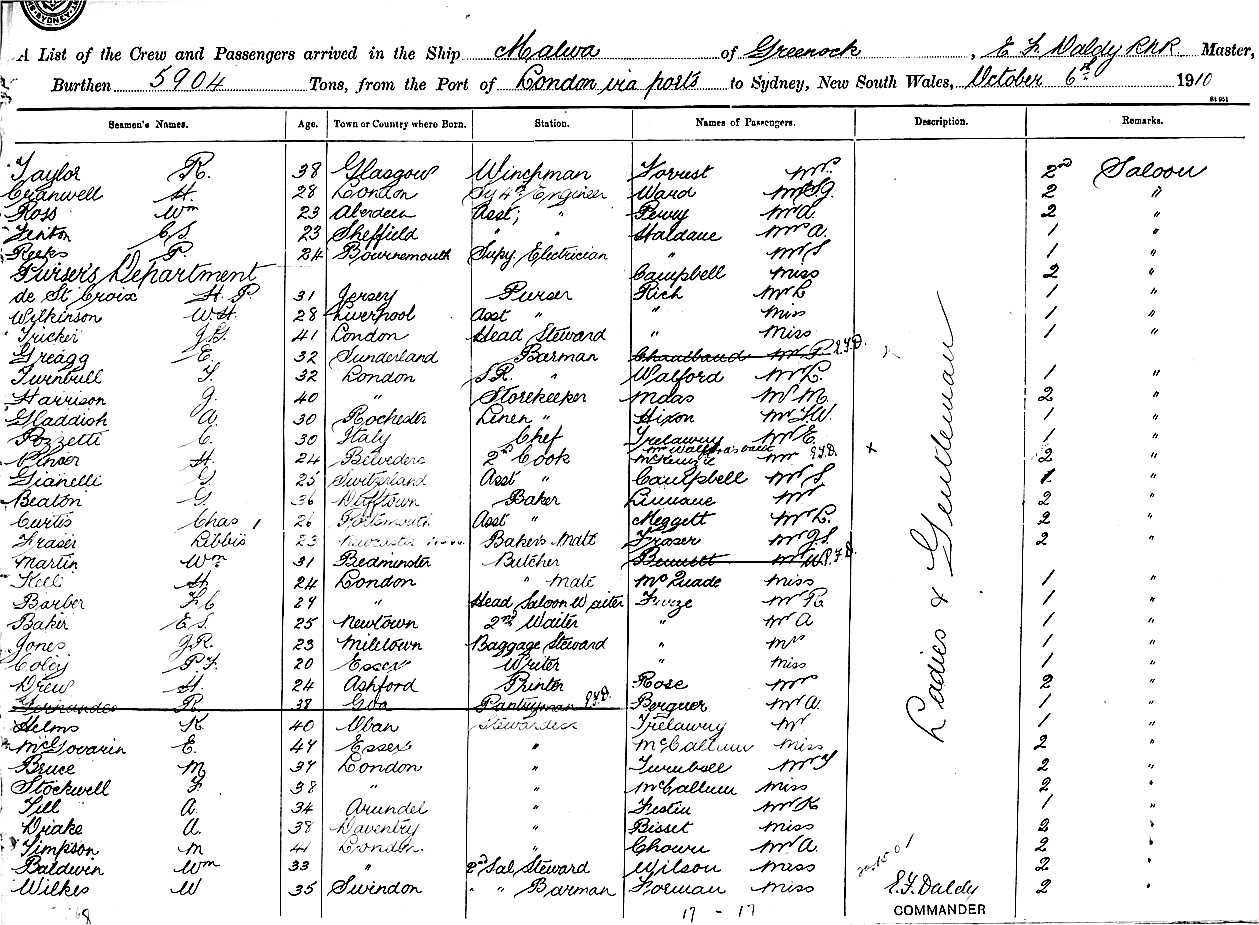 SYDNEY
A List of the Crew and Passengers arrived in the Ship Malwa of Greenock, E F Daldy RNR Master,
Burthen 5904 Tons, from the Port of London via ports to Sydney, New South Wales, October 6th 1910
Seamen's Names. Age. Town or Country where Born. Station. Names of Passengers. Description. Remarks.
Taylor R. 38 Glasgow Winchman Forrest 2nd Saloon
Cranwell H. 28 London Engineer Ward 2 "
Ross Wm 23 Aberdeen Asst; " Perry Mr A. 2 "
Fenton C S. 23 Sheffield " " Haldane Mrs A. 1 "
Reeks P. 24 Bournemouth Supy. Electrician " Mr S 1 "
Purser's Department Campbell Miss 2 "
de St Croix H. P 31 Jersey Purser Rich Mr L 1 "
Wilkinson W. H. 28 Liverpool Asst " " Miss 1 "
Tricker 41 London Head Steward " Miss 1 "
Greagg E. 32 Sunderland Barman
Turnbull F. 32 London S.R. " Walford Mr L. 1 "
Harrison J. 40 " Storekeeper Maas M. 2 "
Gladdish A. 30 Rochester Linen " Hixon Mr F.W. 1 "
Pozzetti C. 30 Italy Chef Trelawry Mr E. 1 "
Pinser H. 24 Belvedere 2nd Cook McKenzie Mr 2 "
Gianelli G. 25 Switzerland Asst " Campbell Mr S. 1 "
Beaton G. 36 Dufftown Baker Linnane Mr 2 "
Curtis Chas 26 Portsmouth Asst " Meggett Mr L. 2 "
Fraser 23 Bakers Mate Fraser Mr J.S. 2 "
Martin Wm 31 Bedminster Butcher Bennett
Kell H 24 London " Mate McQuade Miss 1 "
Barber F. C 27 " Head Saloon Waiter Freeze Mr R. 1 "
Baker E S. 25 Newtown 2nd Waiter " Mr A 1 "
Jones J.R. 23 Miletown Baggage Steward " Mrs 1 "
Coley P F. 20 Essex Writer " Miss 1 "
Drew H. 24 Ashford Printer Rose Mrs 2 "
Fernandes R. 38 Goa Pantryman Berguer Mr A. 1 "
Helms K 40 Oban Stewardess Trelawry Mr 1 "
McGovarin E. 47 Essex " McCallum Miss 2 "
Bruce M. 37 London " Turnbull Mr 2 "
Stockwell F 38 " " McCallum Miss 2 "
Till A. 34 Arundel " Festin Mr K 1 "
Drake A. 38 Daventry " Bisset Miss 2 "
Simpson M 41 London. " Chown Mr A. 2 "
Baldwin Wm 33 " 2nd Sal, Steward Wilson Miss 2 "
Wilkes W 35 Swindon " " Barman Forman Miss 2 "
Ladies & Gentleman
E.F. Daldy
COMMANDER
17 - 17